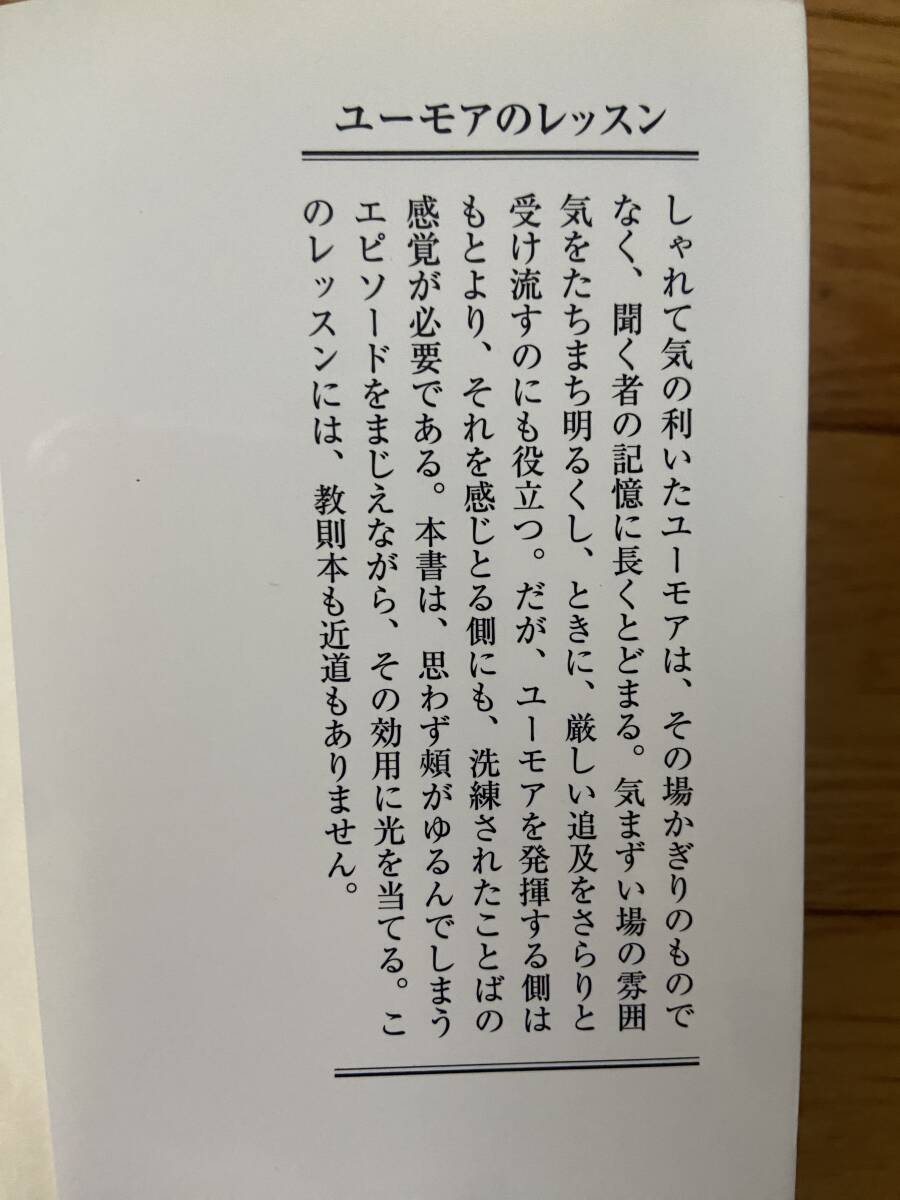 ユーモアのレッスン
しゃれて気の利いたユーモアは、その場かぎりのもので
なく、聞く者の記憶に長くとどまる。気まずい場の雰囲
気をたちまち明るくし、ときに、厳しい追及をさらりと
受け流すのにも役立つ。だが、ユーモアを発揮する側は
もとより、それを感じとる側にも、洗練されたことばの
感覚が必要である。本書は、思わず頰がゆるんでしまう
エピソードをまじえながら、その効用に光を当てる。こ
のレッスンには、教則本も近道もありません。